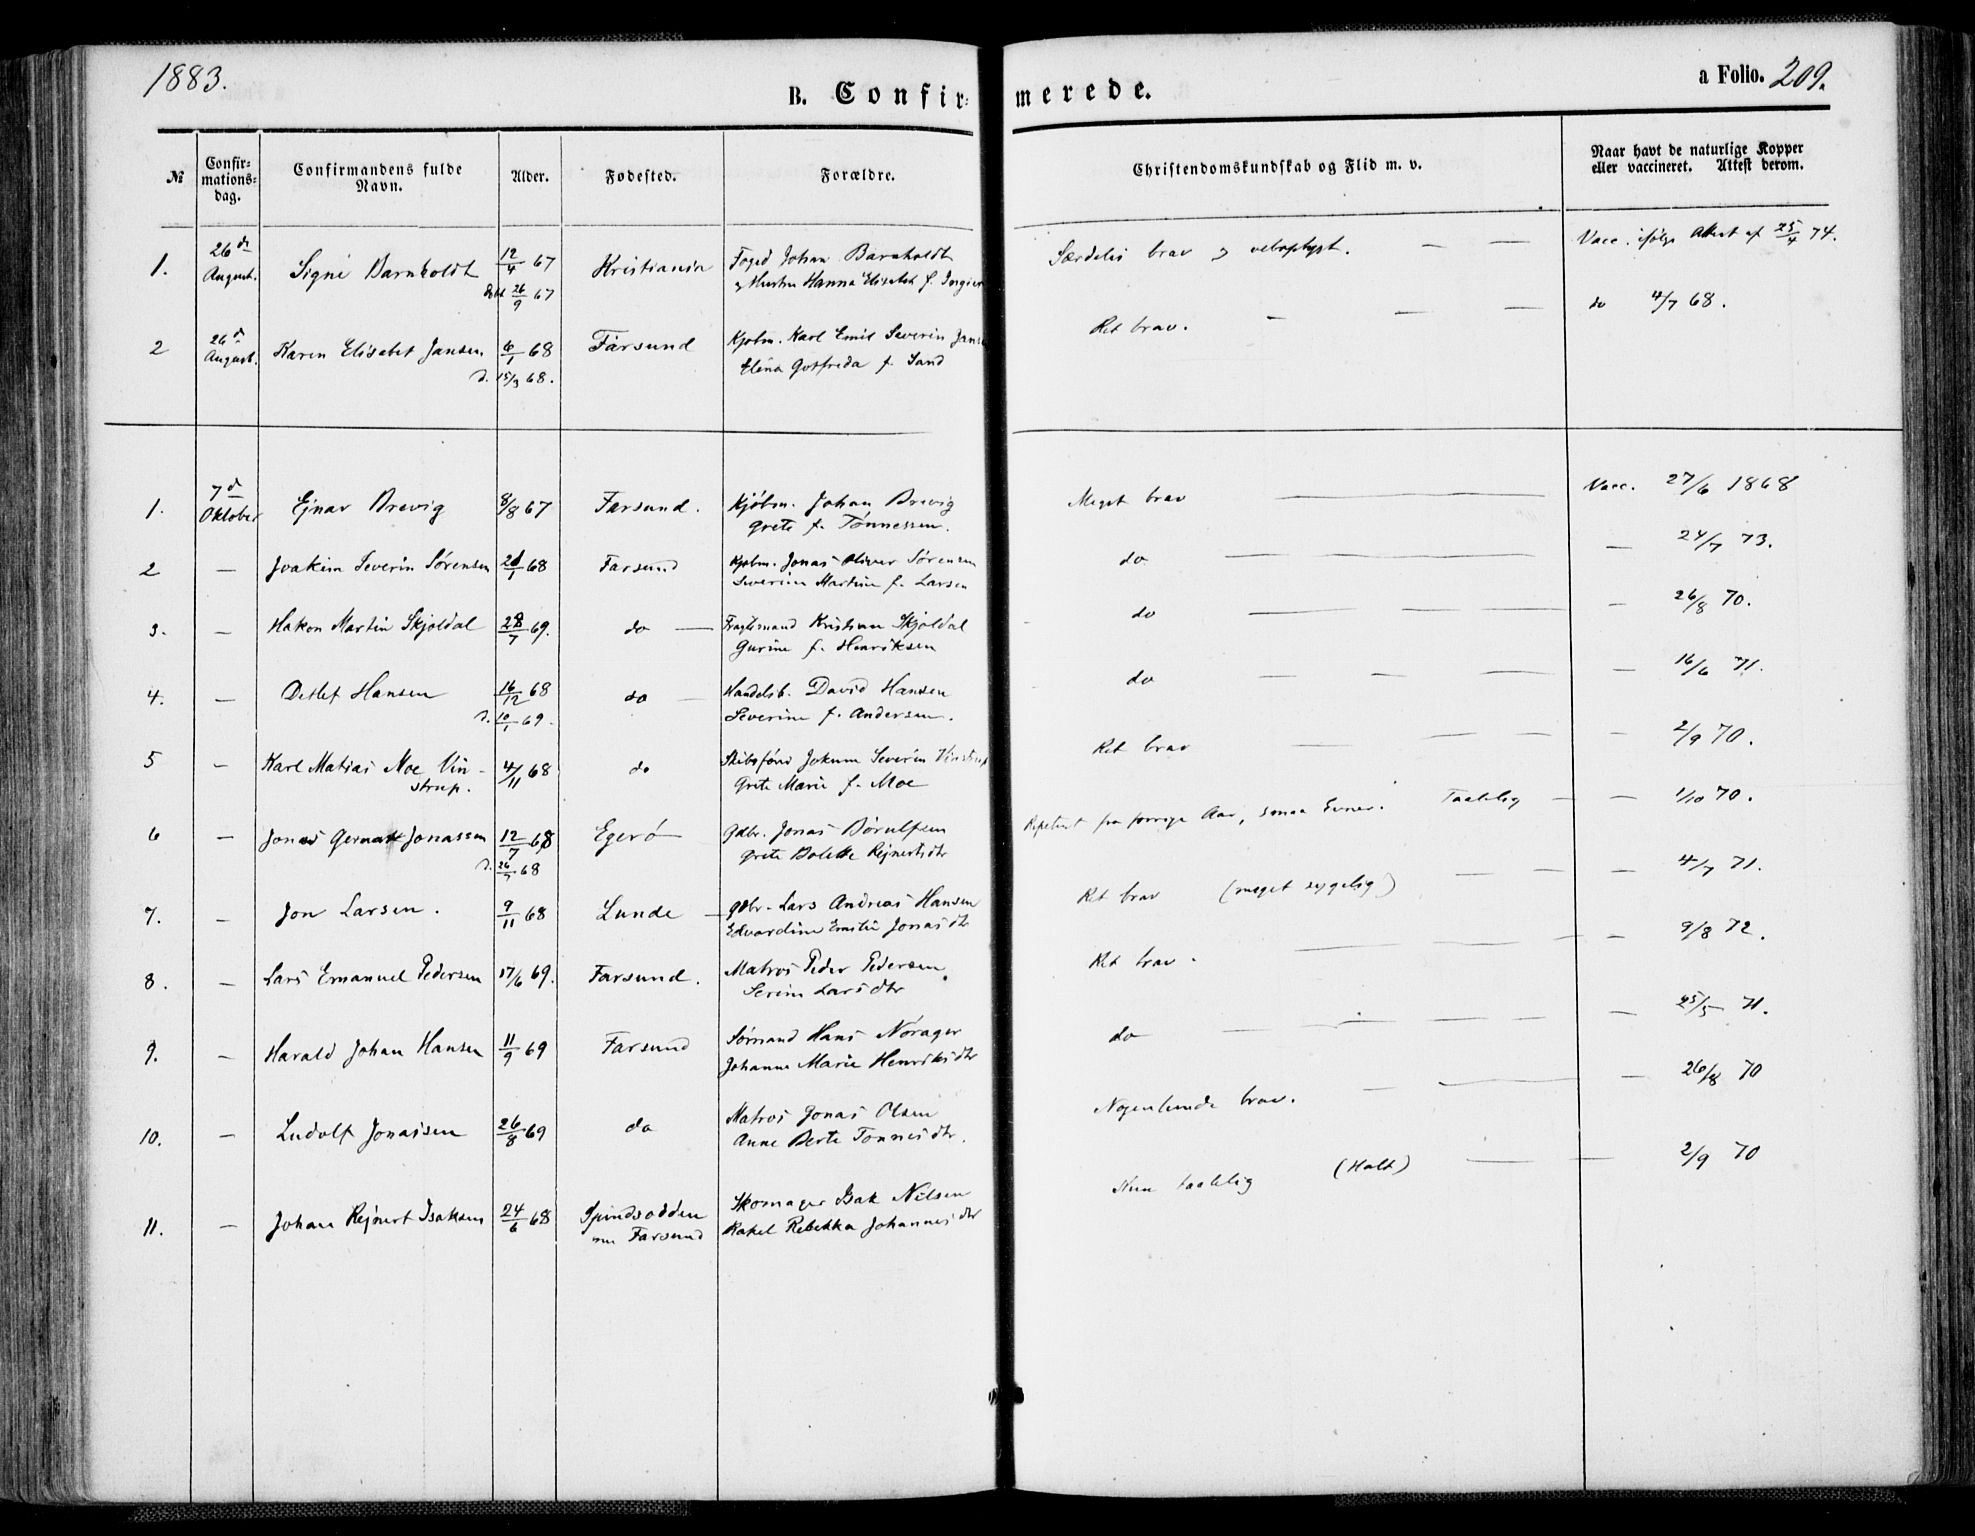 1883.
B. Confir=
merede.
a Folio. 209.
№
Confir=
mations=
dag.
Confirmandens fulde
Navn.
Alder.
Fødested.
Forældre.
Christendomskundskab og Flid m. v.
Naar havt de naturlige Kopper
eller vaccineret. Attest derom.
1. 26de August. Signe Barnholdt 12/4 67 Kristiania Foged Johan Barnholdt Særdeles brav og veloplyst. — — Vacc. ifølge Attest af 25/4 74.
døbt 26/9 67 og Hustru Hanna Elisabet f.
2 26d August. Karen Elisabet Jansen 6/1 68 Farsund Kjøbm. Karl Emil Severin Ret brav. — — — do 4/7 68.
d. 15/3 68. Elena Gotfreda f. Sand
1. 7d Oktober Ejnar Brevig 8/8 67 Farsund. Kjøbm. Johan Brevig Meget brav — Vacc. 27/6 1868
Grete f. Tønnessen.
2 — Joakim Severin Sørensen /1 68 Farsund Kjøbm. Jonas Oliver Sørensen do — — — 24/7 73.
Severine Martine f. Larsen
3. — Hakon Martin Skjoldal 28/7 69. do — Fragtemand Kristian Skjoldal do — — — — 26/8 70.
Gurine f. Henriksen
4. — Detlef Hansen 16/12 68 do — Handelsb. David Hansen do — — — — 16/6 71.
d. 10/1 69. Severine f. Andersen.
5 — Karl Matias Moe Vin- 4/11 68 do Skibsfører Jokum Severin Vinstrup Ret brav — — — 2/9 70.
strup. Grete Marie f. Moe
6 — Jonas Gernat Jonassen 12/7 68 Egerø Gdbr. Jonas Børulfsen Repetent fra forrige Aar, smaa Evner. Taalelig — — 1/10 70.
d. 26/7 68 Grete Bolette Rejnertsdtr
7. — Jon Larsen. 9/11 68 Lunde — Gdbr. Lars Andreas Hansen Ret brav (meget sygelig) — — — 4/7 71.
Edvardine Emilie Jonasdtr
8. — Lars Emanuel Pedersen 17/6 69. Farsund. Matros Peder Pedersen. Ret brav. — — — 9/8 72.
Serine Larsdtr
9. — Harald Johan Hansen 11/9 69 Farsund Sømand Hans Nørager do — — — — 25/5 71.
Johanne Marie Henriksdtr
10. — Ludolf Jonassen 26/8 69 do Matros Jonas Olsen Nogenlunde brav. — — — 26/8 70
Anne Berte Tønnesdtr.
11. — Johan Rejnert Isaksen 24/6 68 Spindsodden Skomager Isak Nilsen Kun taalelig (Halt) — — 2/9 70
nu Farsund Rakel Rebekka Johannesdtr